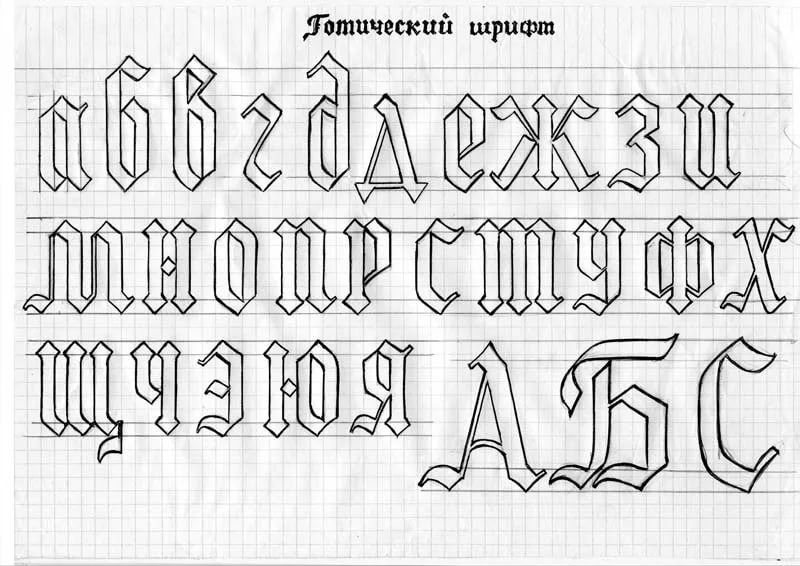 Готический шрифт
а б в г д д е ж з и
м н о п р с т у ф х
щ ч э ю я А Б С